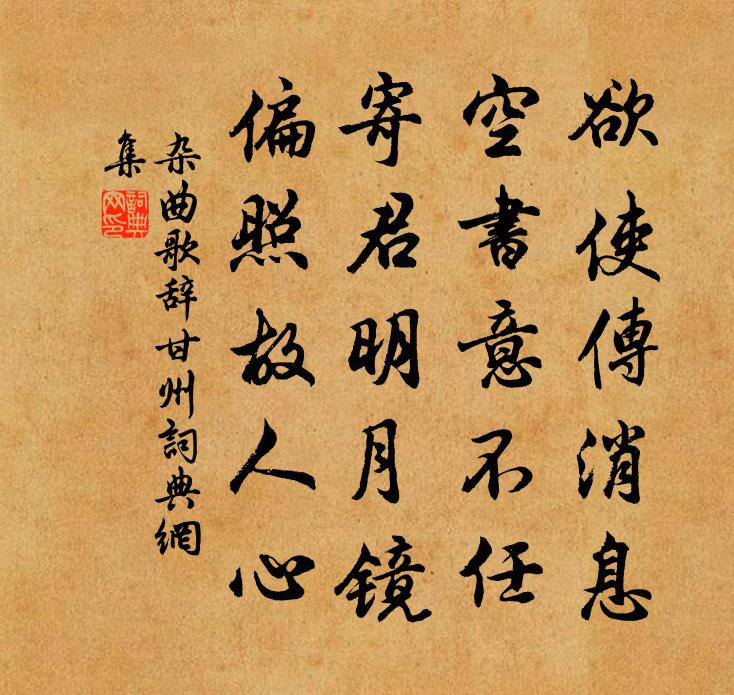 欲使傳消息
空書意不任
寄君明月镜
偏照故人心
杂曲歌辞甘州詞典網
集
詞典
网印